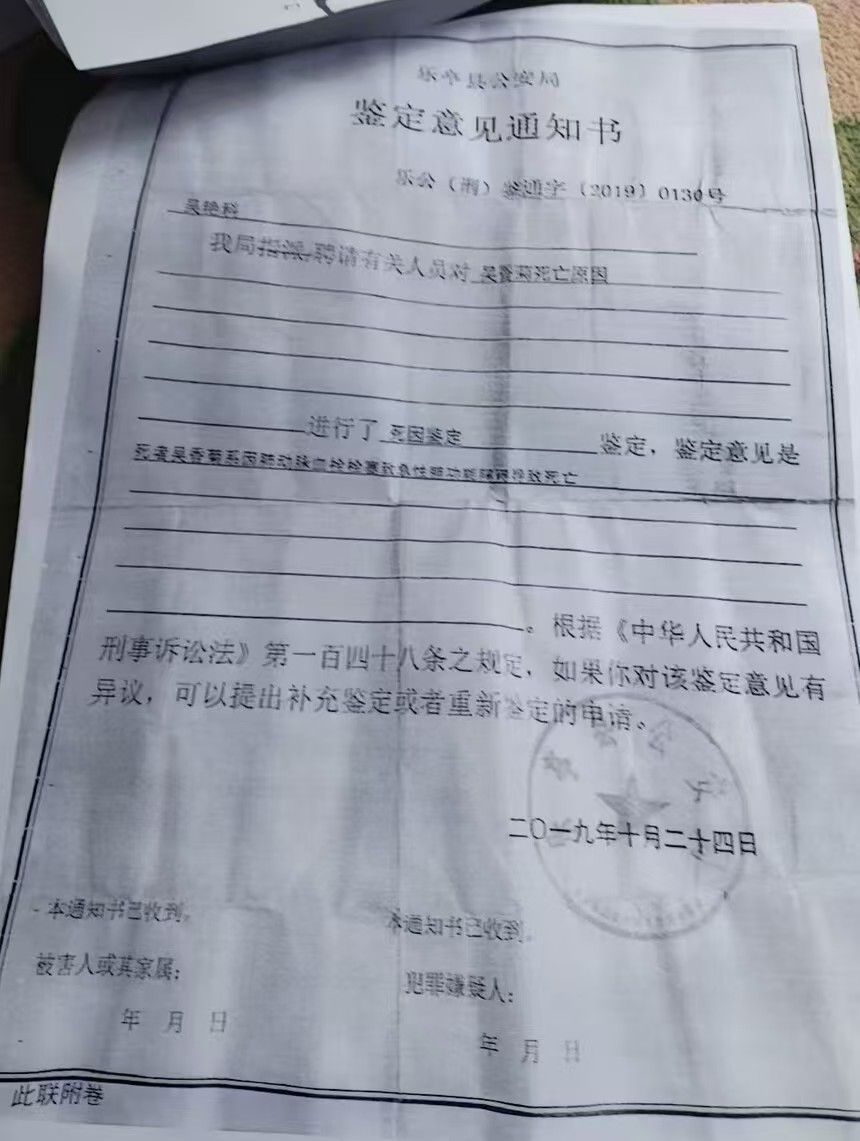 乐亭县公安局
鉴定意见通知书
乐公（刑）鉴通字（2019）0130号
吴艳科
我局指派/聘请有关人员对 吴香菊死亡原因
进行了 死因鉴定 鉴定，鉴定意见是
死者吴香菊系因肺动脉血栓栓塞致急性肺功能障碍导致死亡
。根据《中华人民共和国
刑事诉讼法》第一百四十八条之规定，如果你对该鉴定意见有
异议，可以提出补充鉴定或者重新鉴定的申请。
二〇一九年十月二十四日
本通知书已收到。 本通知书已收到。
被害人或其家属： 犯罪嫌疑人：
年 月 日 年 月 日
此联附卷